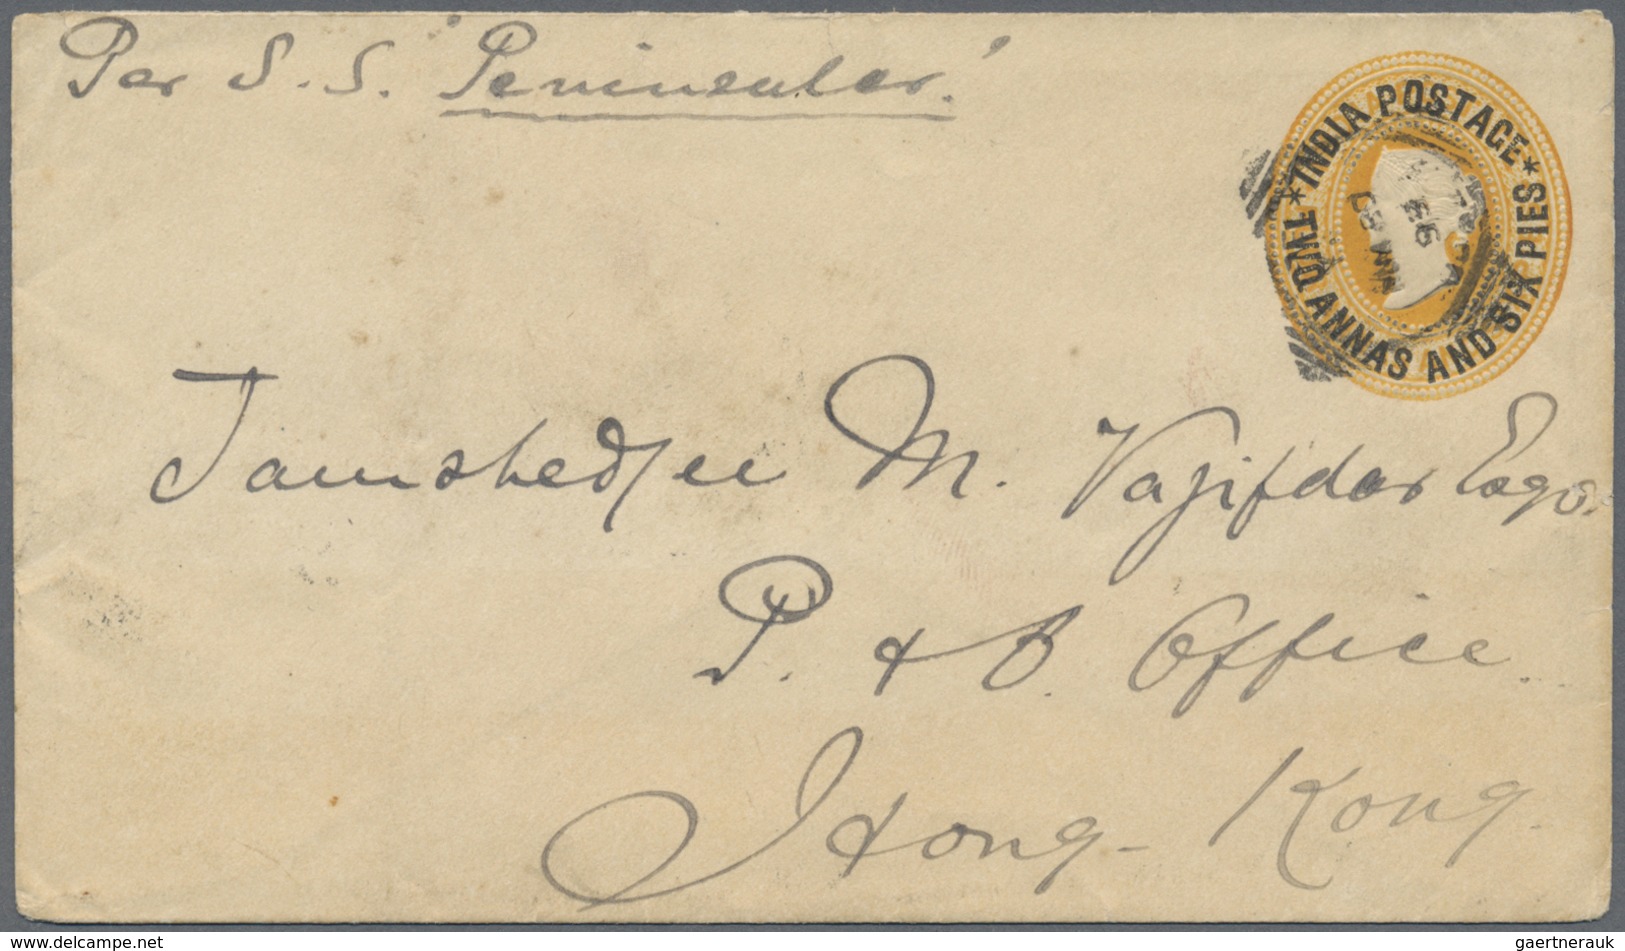 Per S. S. "Peninsular."
INDIA POSTAGE
TWO ANNAS AND SIX PIES
Jamshedjee M. Vajifdar Esqr.
P. & O. Office.
Hong-Kong.
www.delcampe.net
gaertnerauk